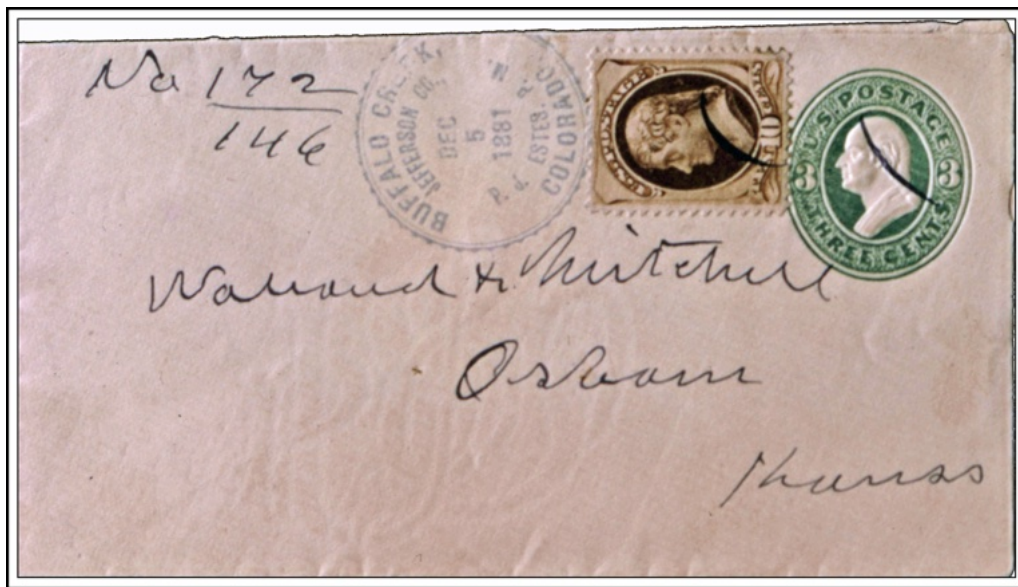 No 172
146
BUFFALO CREEK,
JEFFERSON CO.,
DEC
5
1881
P. J. ESTES, P. M.
COLORADO.
U.S. POSTAGE
3 3
THREE CENTS
& Mitchell
Osborn
Kansas